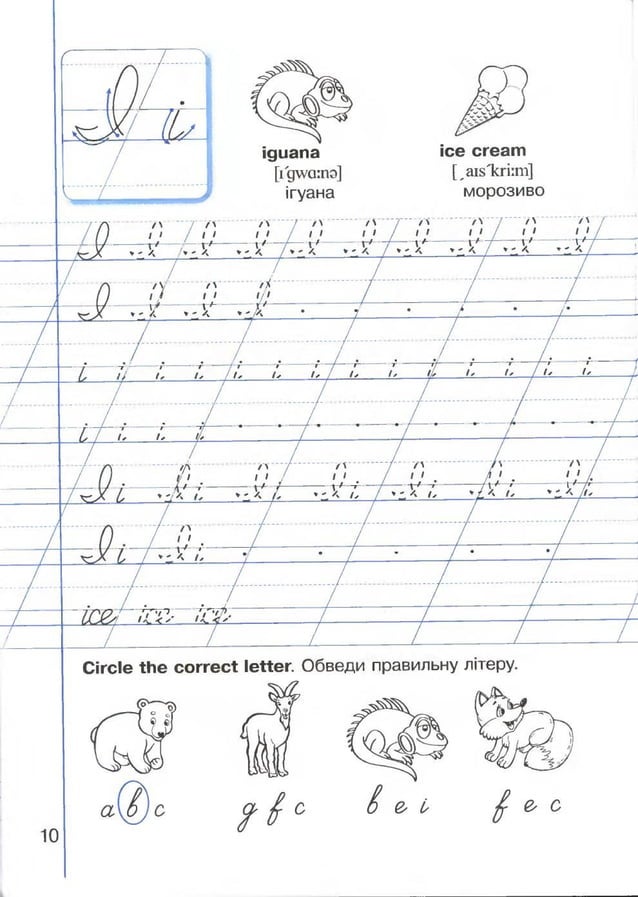 I i
iguana
[ɪ´gwɑ:nə]
ігуана
ice cream
[ˌaɪs´kri:m]
морозиво
I I I I I I I I I I
I I I I
i i i i i i i i i i i i i i
i i i i
I i I i I i I i I i I i I i
I i I i
ice ice ice
Circle the correct letter. Обведи правильну літеру.
a b c
g f c
b e i
f e c
10